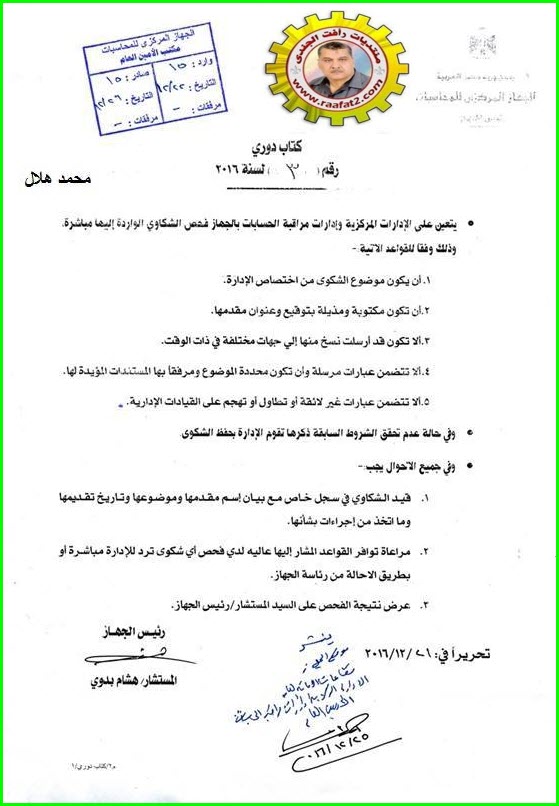 الجهاز المركزى للمحاسبات
مكتب الأمين العام
وارد : ١٥
صادر : ١٥
التاريخ : ١٢/٢٥
التاريخ : ١٢/٢٦
مرفقات : -
مرفقات : -
منتديات رأفت الجندى
www.raafat2.com
جمهورية مصر العربية
الجهاز المركزى للمحاسبات
محمد هلال
كتاب دوري
رقم ( ٣ ) لسنة ٢٠١٦
• يتعين على الإدارات المركزية وإدارات مراقبة الحسابات بالجهاز فحص الشكاوي الواردة إليها مباشرة،
وذلك وفقاً للقواعد الاتية :-
١. أن يكون موضوع الشكوى من اختصاص الإدارة.
٢. أن تكون مكتوبة ومذيلة بتوقيع وعنوان مقدمها.
٣. ألا تكون قد أرسلت نسخ منها إلي جهات مختلفة في ذات الوقت.
٤. ألا تتضمن عبارات مرسلة وأن تكون محددة الموضوع ومرفقاً بها المستندات المؤيدة لها.
٥. ألا تتضمن عبارات غير لائقة أو تطاول أو تهجم على القيادات الإدارية.
• وفي حالة عدم تحقق الشروط السابقة ذكرها تقوم الإدارة بحفظ الشكوى.
• وفي جميع الاحوال يجب :-
١. قيد الشكاوي في سجل خاص مع بيان إسم مقدمها وموضوعها وتاريخ تقديمها
وما اتخذ من إجراءات بشأنها.
٢. مراعاة توافر القواعد المشار إليها عاليه لدي فحص أي شكوى ترد للإدارة مباشرة أو
بطريق الاحالة من رئاسة الجهاز.
٣. عرض نتيجة الفحص على السيد المستشار/رئيس الجهاز.
رئيس الجهاز
المستشار/ هشام بدوي
تحريراً في: ٢٠١٦/١٢/٢١
ينشر
٢٠١٦/١٢/٢٥
م٢/كتاب دوري/١